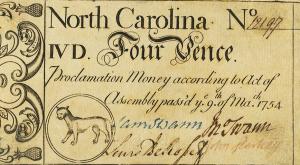 North Carolina No. 12197
IVD. Four Pence.
Proclamation Money according to Act of
Assembly pass'd ye. 9.th of Mar.h 1754
Jno Swann
Lewis DeRosset